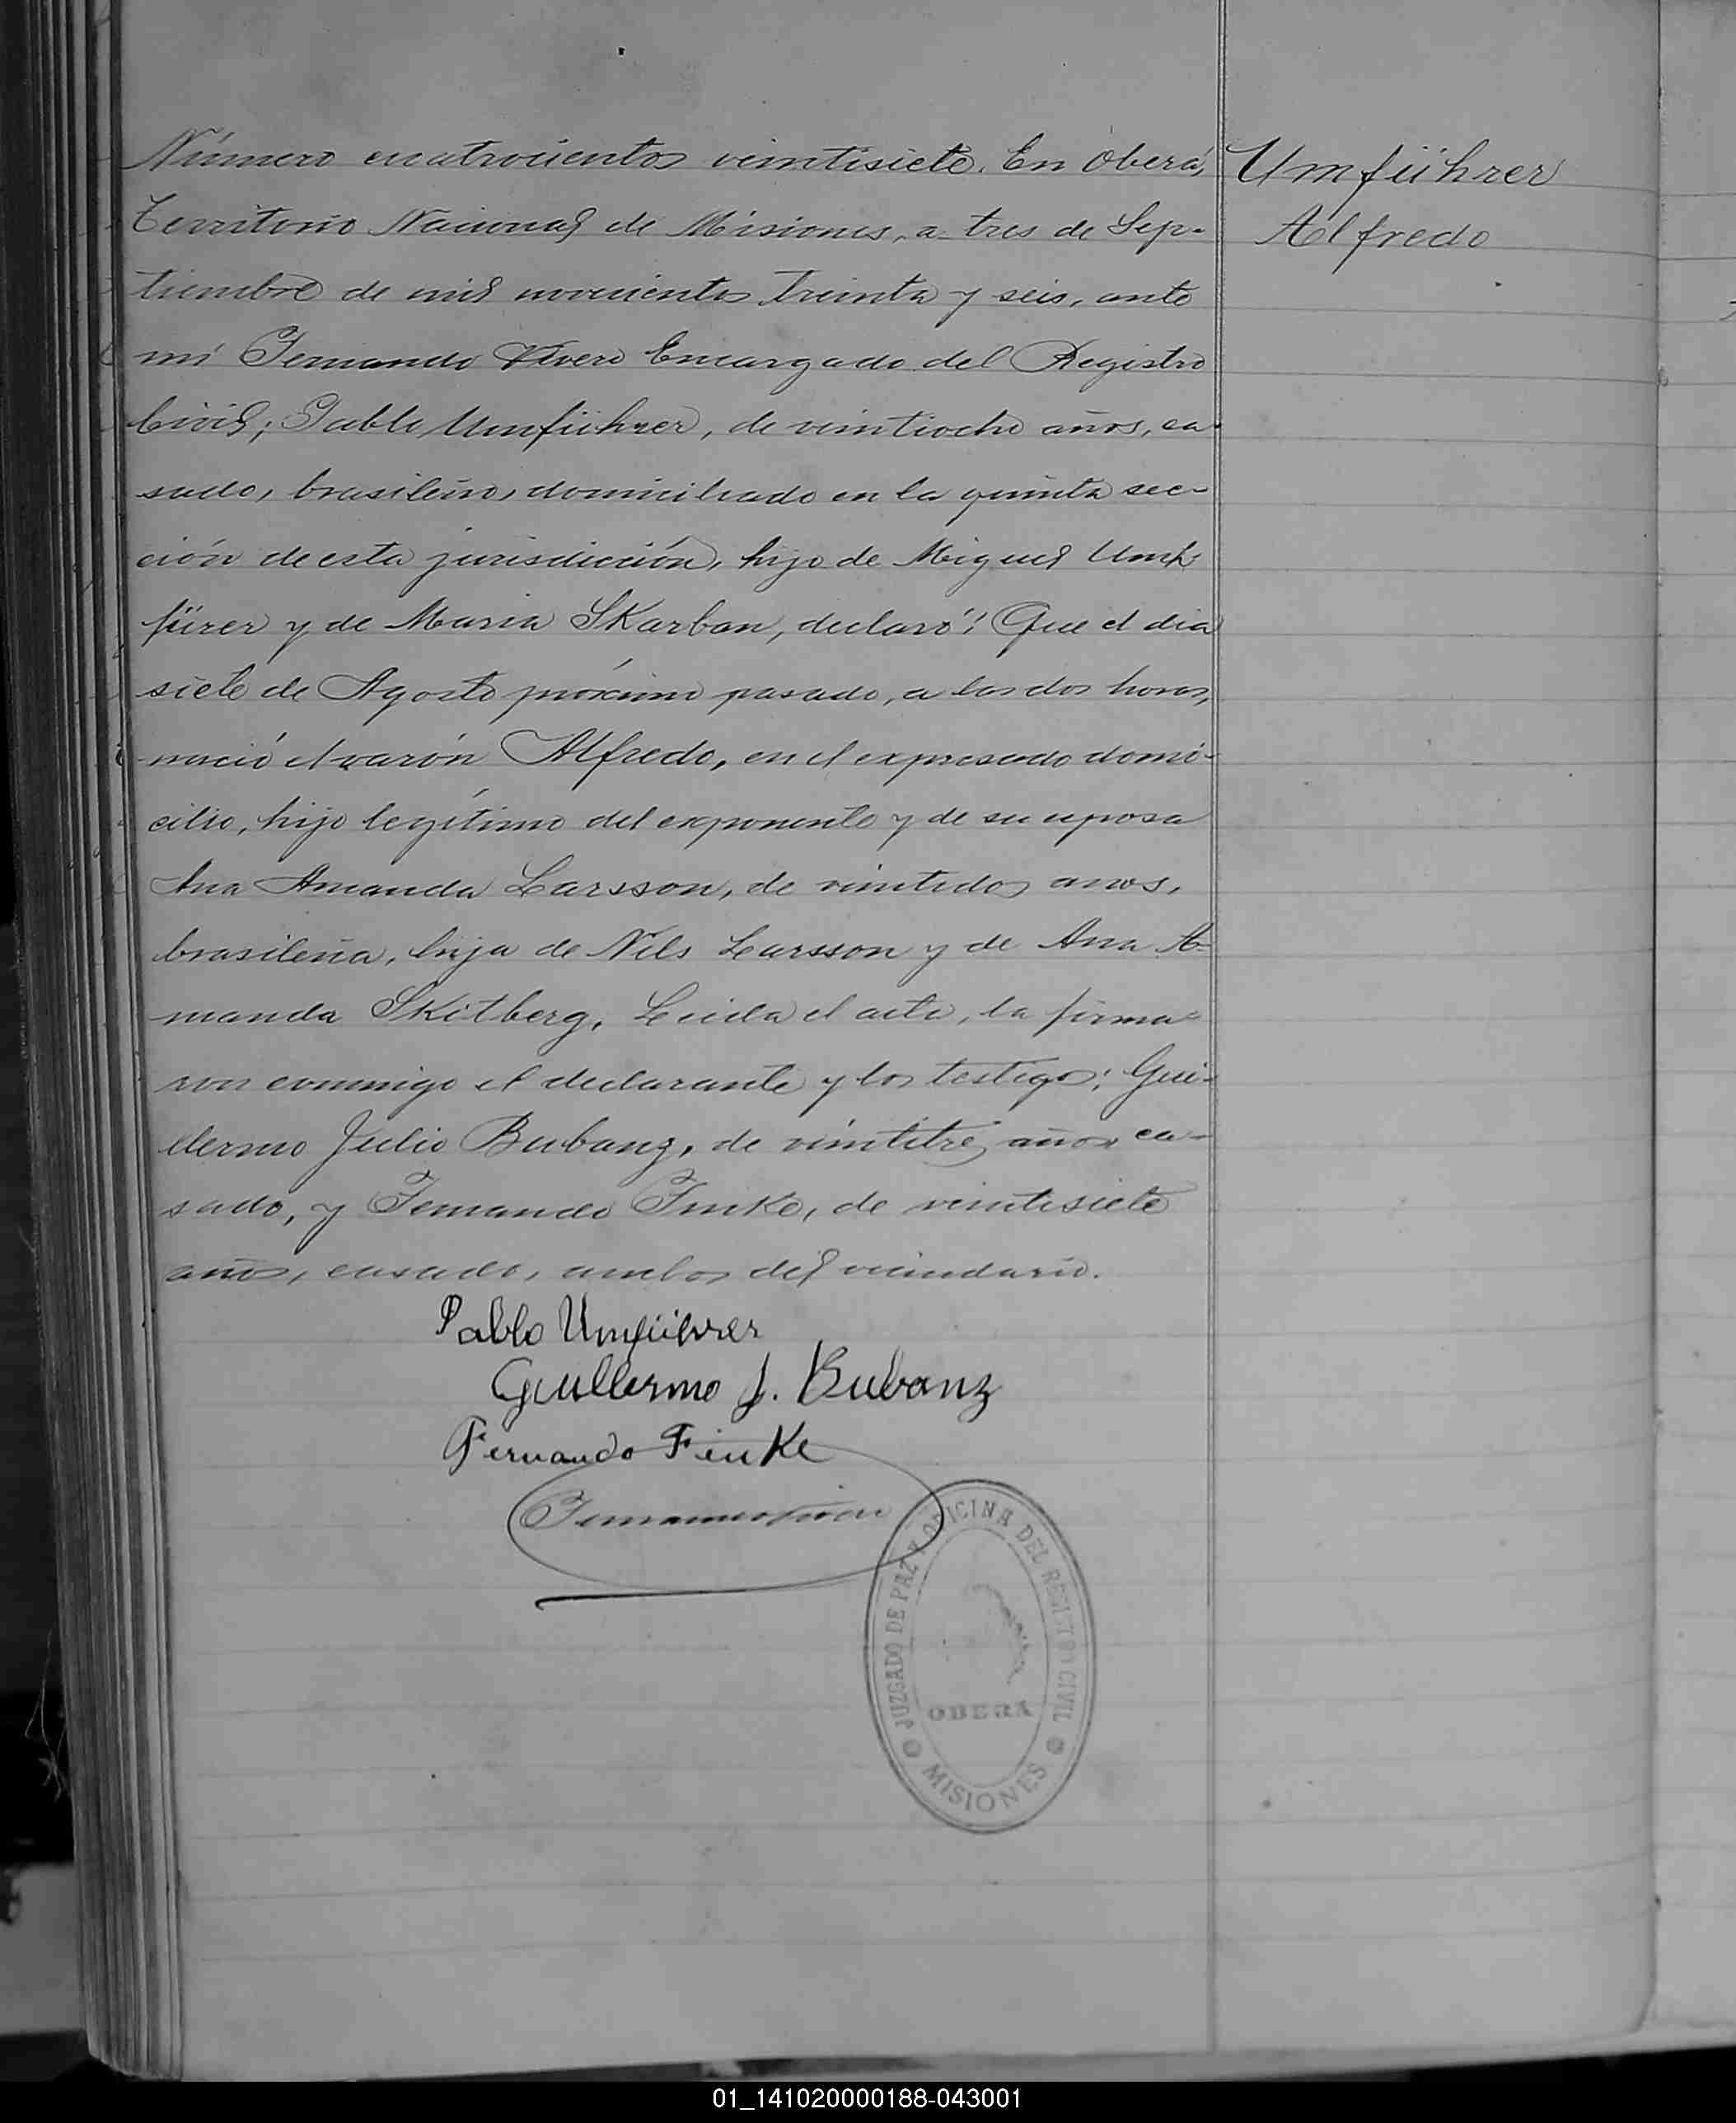 Número cuatrocientos veintisiete. En Oberá,
Territorio Nacional de Misiones, a tres de Sep-
tiembre de mil novecientos treinta y seis, ante
mí Fernando Vivero Encargado del Registro
Civil; Pablo Umführer, de veintiocho años, ca-
sado, brasileño, domiciliado en la quinta sec-
ción de esta jurisdicción, hijo de Miguel Umh
fürer y de Maria SKarban, declaró: Que el dia
siete de Agosto próximo pasado, a las dos horas,
nació el varón Alfredo, en el expresado domi-
cilio, hijo legítimo del exponente y de su esposa
Ana Amanda Larsson, de veintidos anos,
brasileña, hija de Nils Larsson y de Ana A-
manda SKitberg. Leida el acta, la firma-
ron conmigo el declarante y los testigos: Gui-
llermo Julio Bubanz, de veintitres años ca-
sado, y Fernando FinKe, de veintisiete
años, casado, ambos del vecindario.
Pablo Umführer
Guillermo J. Bubanz
Fernando FinKe
JUZGADO DE PAZ Y OFICINA DEL REGISTRO CIVIL
OBERA
MISIONES
Umführer
Alfredo
01_141020000188-043001